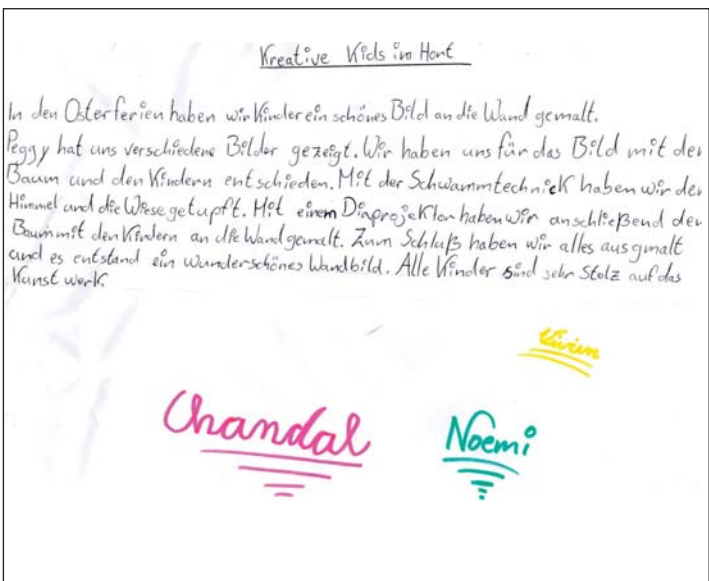 Kreative Kids im Hort
In den Osterferien haben wir Kinder ein schönes Bild an die Wand gemalt.
Peggy hat uns verschiedene Bilder gezeigt. Wir haben uns für das Bild mit der
Baum und den Kindern entschieden. Mit der Schwammtechnick haben wir der
Himmel und die Wiese getupft. Mit einem Diaprojektor haben wir anschließend der
Baum mit den Kindern an die Wand gemalt. Zum Schluß haben wir alles ausgmalt
und es entstand ein wunderschönes Wandbild. Alle Kinder sind sehr Stolz auf das
Kunstwerk.
Vivien
Chandal
Noemi